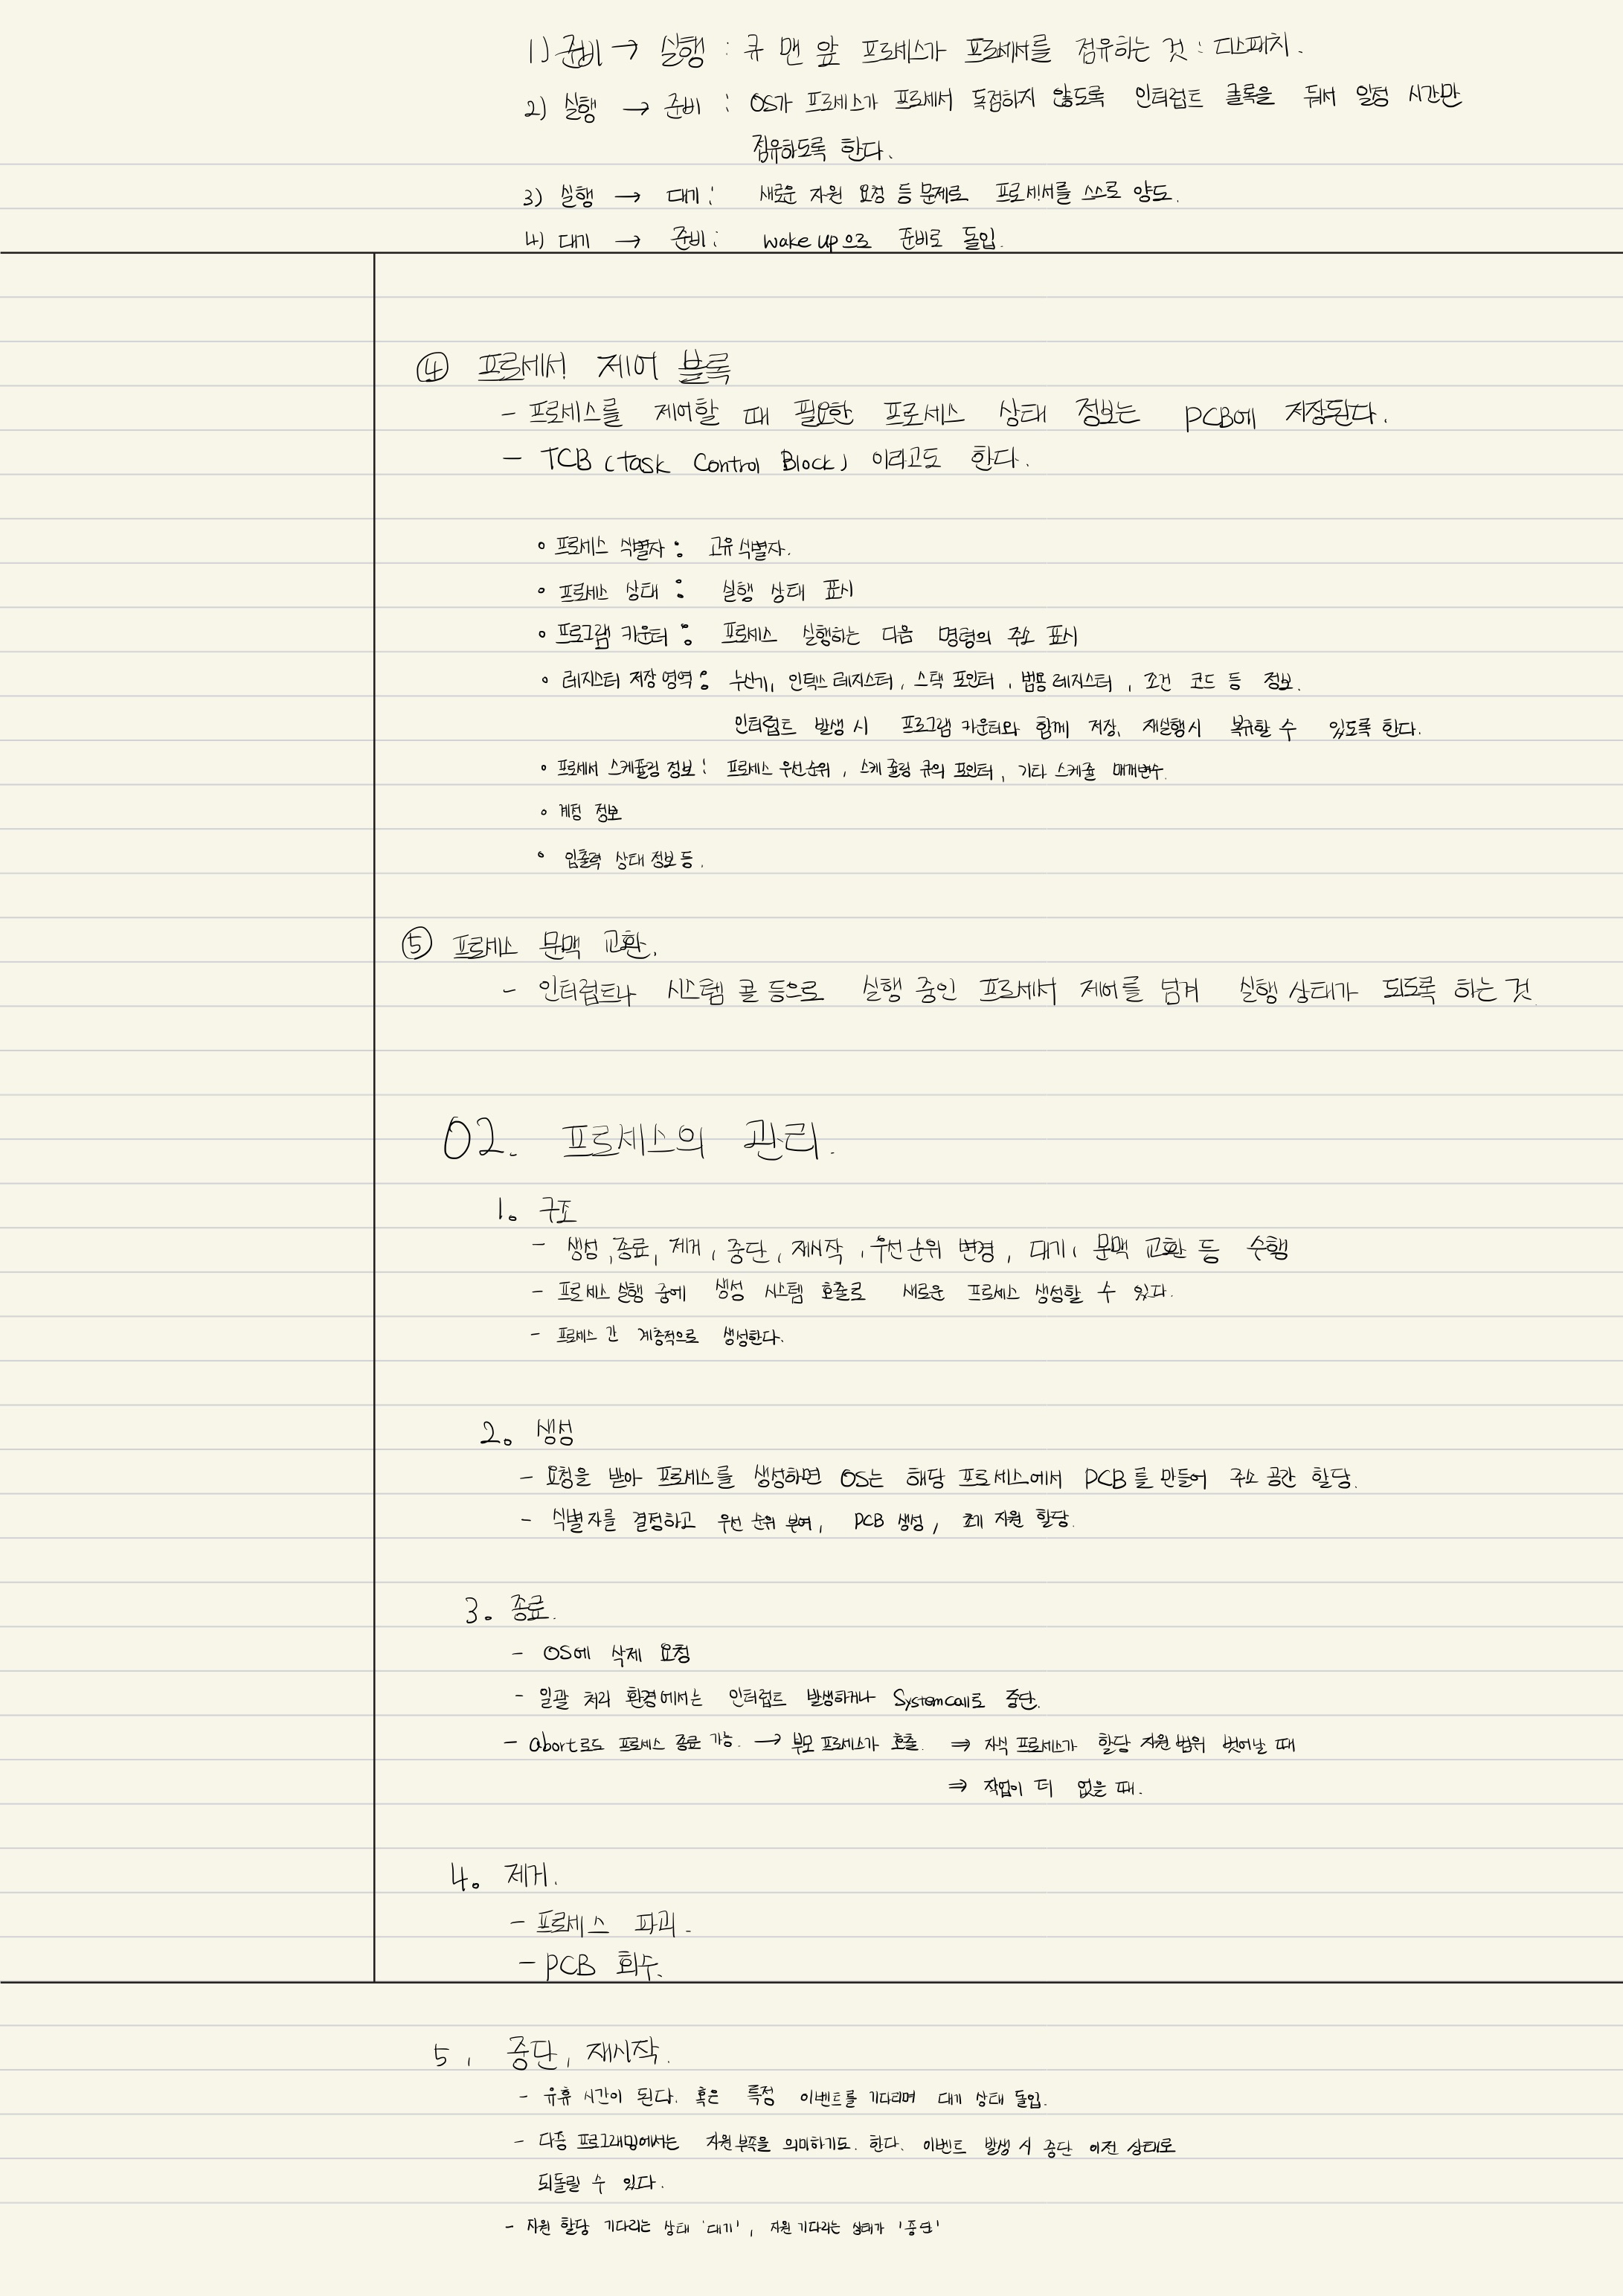 1) 준비 → 실행 : 큐 맨 앞 프로세스가 프로세서를 점유하는 것 : 디스패치.
2) 실행 → 준비 : OS가 프로세스가 프로세서 독점하지 않도록 인터럽트 클록을 둬서 일정 시간만
점유하도록 한다.
3) 실행 → 대기 : 새로운 자원 요청 등 문제로 프로세서를 스스로 양도.
4) 대기 → 준비 : wake up으로 준비로 돌입.
④ 프로세서 제어 블록
- 프로세스를 제어할 때 필요한 프로세스 상태 정보는 PCB에 저장된다.
- TCB (Task Control Block) 이라고도 한다.
• 프로세스 식별자 : 고유 식별자.
• 프로세스 상태 : 실행 상태 표시
• 프로그램 카운터 : 프로세스 실행하는 다음 명령의 주소 표시
• 레지스터 저장 영역 : 누산기, 인덱스 레지스터, 스택 포인터, 범용 레지스터, 조건 코드 등 정보.
인터럽트 발생 시 프로그램 카운터와 함께 저장, 재실행시 복귀할 수 있도록 한다.
• 프로세서 스케줄링 정보 : 프로세스 우선순위, 스케줄링 큐의 포인터, 기타 스케줄 매개변수.
• 계정 정보
• 입출력 상태 정보 등.
⑤ 프로세스 문맥 교환.
- 인터럽트나 시스템 콜 등으로 실행 중인 프로세서 제어를 넘겨 실행 상태가 되도록 하는 것
02. 프로세스의 관리.
1. 구조
- 생성, 종료, 제거, 중단, 재시작, 우선순위 변경, 대기, 문맥 교환 등 수행
- 프로세스 실행 중에 생성 시스템 호출로 새로운 프로세스 생성할 수 있다.
- 프로세스 간 계층적으로 생성한다.
2. 생성
- 요청을 받아 프로세스를 생성하면 OS는 해당 프로세스에서 PCB를 만들어 주소 공간 할당.
- 식별자를 결정하고 우선 순위 부여, PCB 생성, 초기 자원 할당.
3. 종료.
- OS에 삭제 요청
- 일괄 처리 환경에서는 인터럽트 발생하거나 System call로 중단.
- abort로도 프로세스 종료 가능. → 부모 프로세스가 호출. ⇒ 자식 프로세스가 할당 자원 범위 벗어날 때
⇒ 작업이 더 없을 때.
4. 제거.
- 프로세스 파괴.
- PCB 회수.
5, 중단, 재시작.
- 유휴 시간이 된다. 혹은 특정 이벤트를 기다리며 대기 상태 돌입.
- 다중 프로그래밍에서는 자원부족을 의미하기도. 한다. 이벤트 발생 시 중단 이전 상태로
되돌릴 수 있다.
- 자원 할당 기다리는 상태 '대기', 자원 기다리는 상태가 '중단'